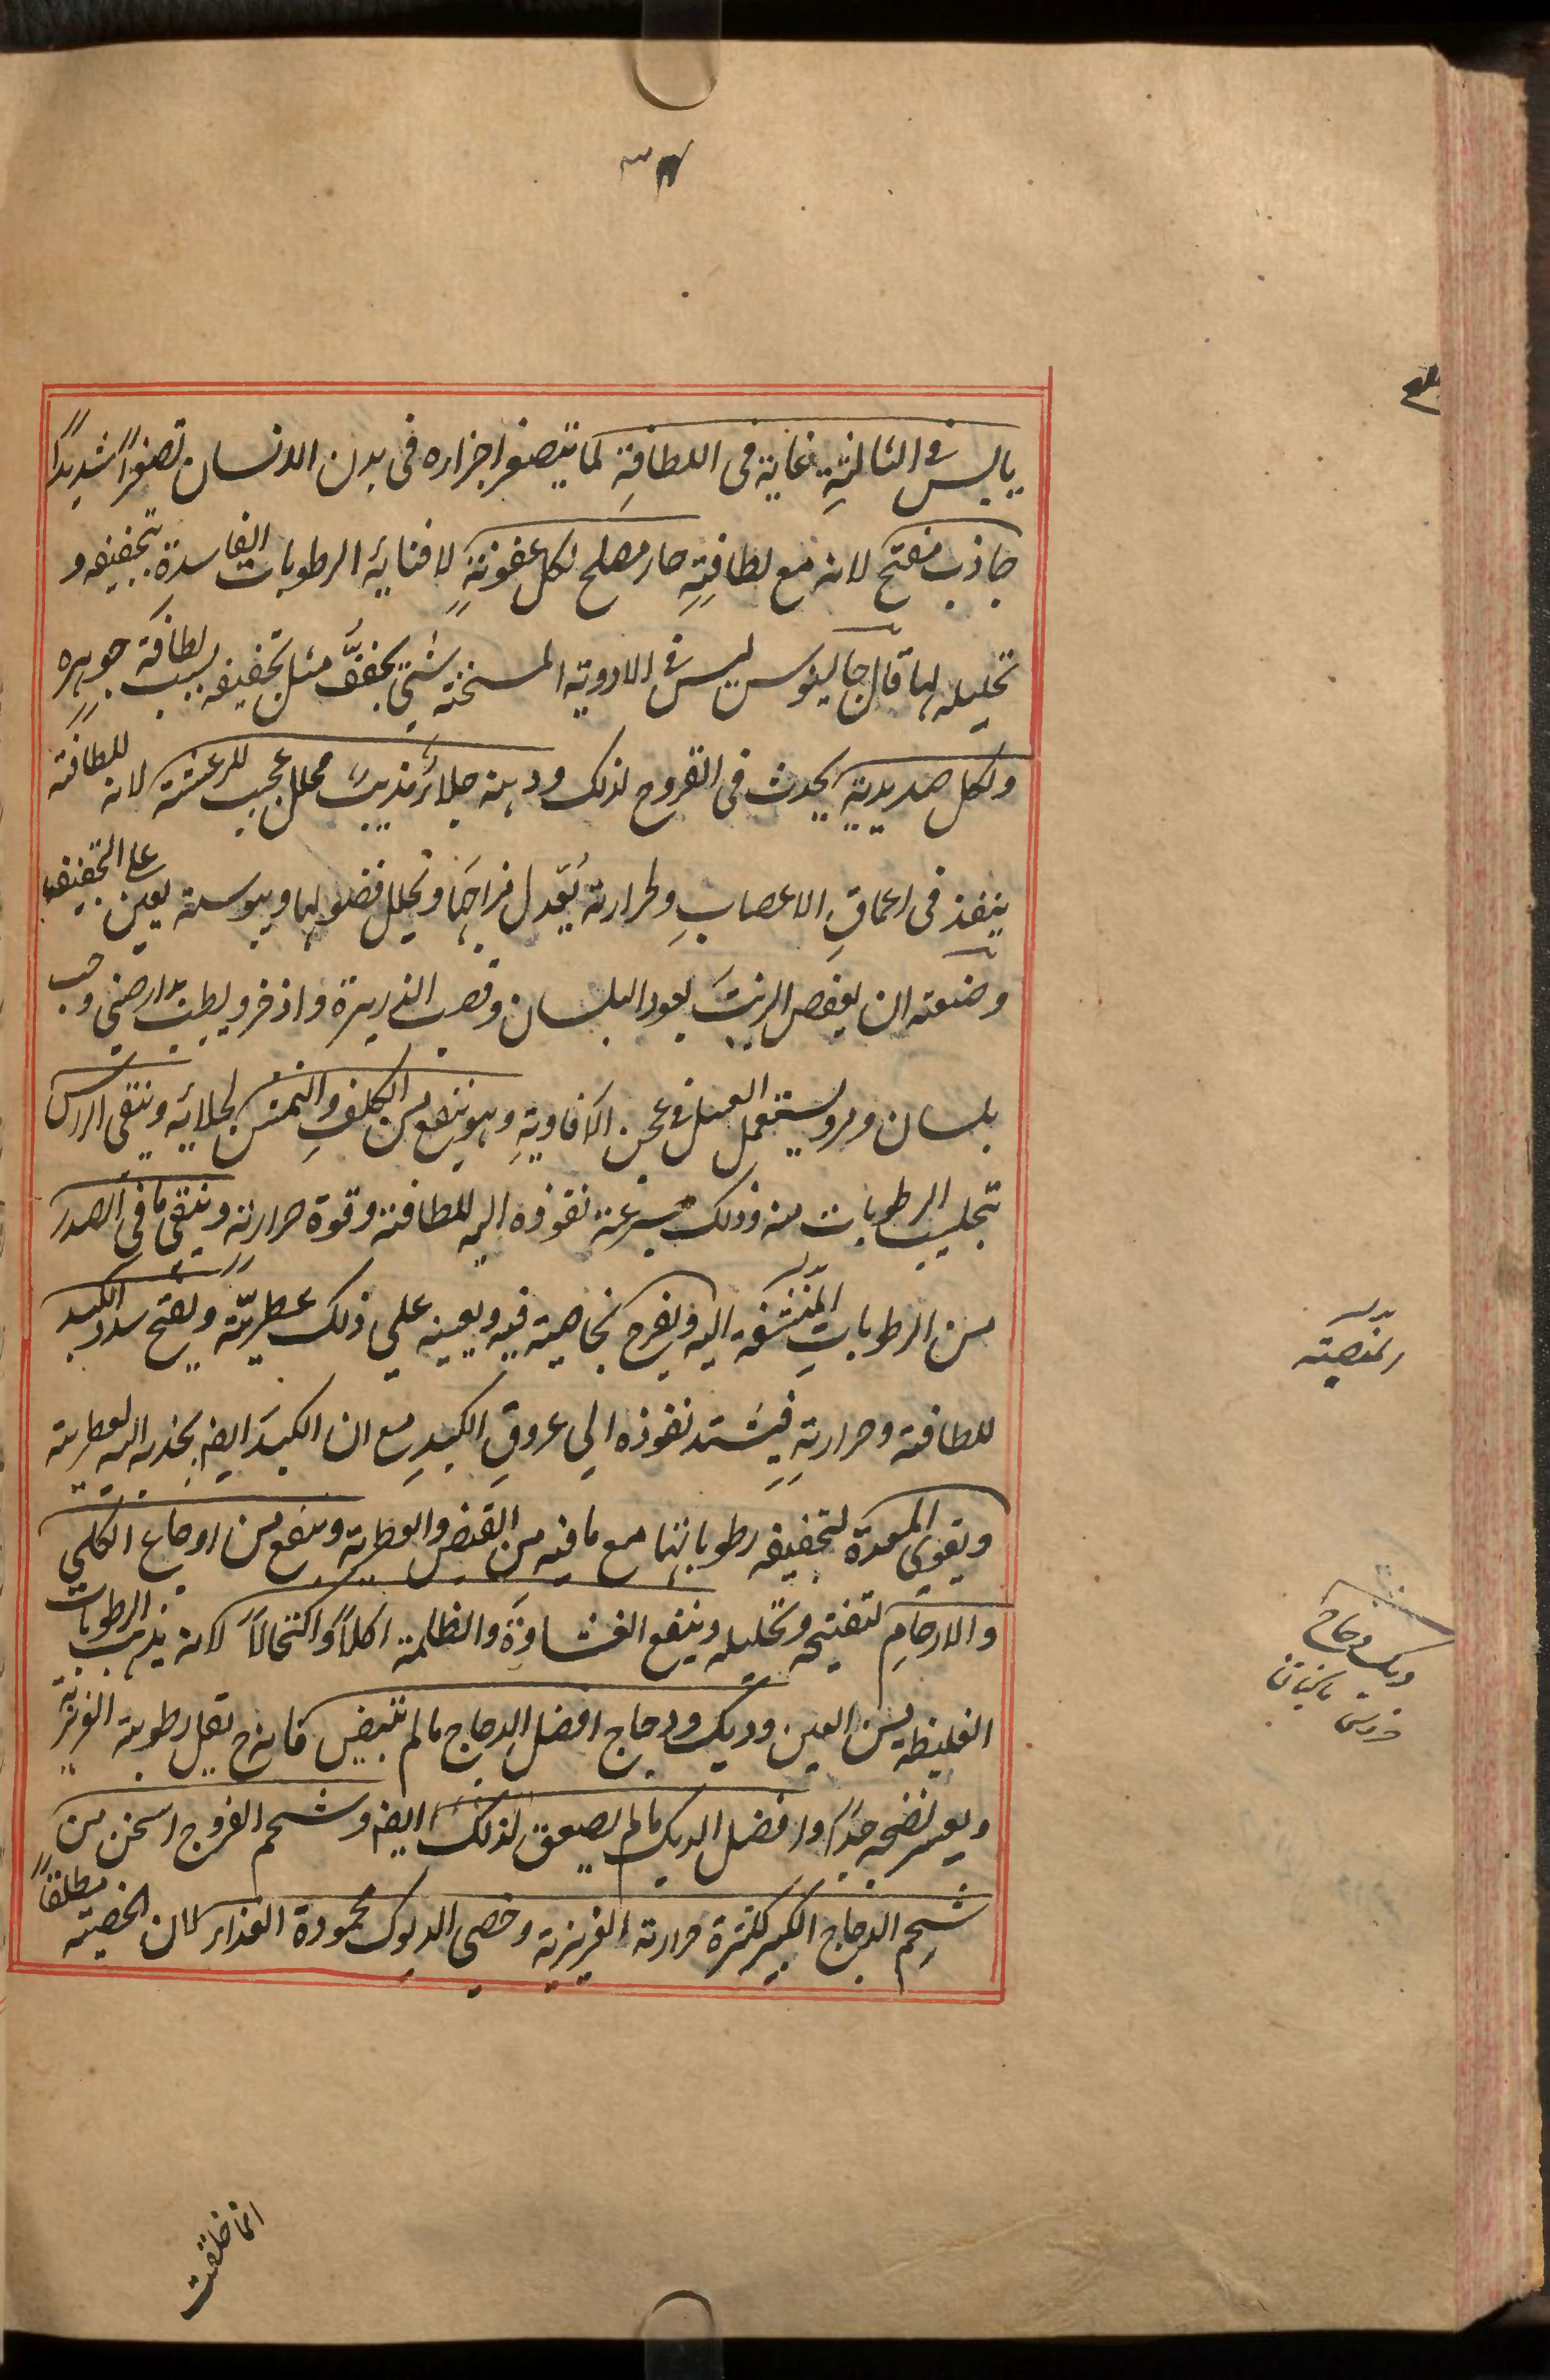 يابس فى الثالثة غاية فى اللطافة لما يتصغر اجزاره فى بدن الانسان تصغرا شديدا
جاذب مفتح لانه مع لطافته حار مصلح لكل عفونة لافنايه الرطوبات الفاسدة بتجفيفه و
تحليله لها قال جالينوس ليس فى الادوية المسخنة شئ يجفف مثل تجفيفه بسبب لطافة جوهره
ولكل صديدية يحدث فى القروح لذلك ودهنه جلاء مذيب محلل عجيب للرعشة لانه للطافته
ينفذ فى اعماق الاعصاب ولحرارته يعدل مزاجها ويحلل فضولها ويبوسته يعين على التجفيف
وصنعته ان يعفص الزيت بعود البلسان وقصب الذريرة واذخر ويطيب بدارصينى وحب
بلسان ومر ويستعمل العسل فى عجن الافاوية وهو ينفع من الكلف والنمش لجلائه وينقى الراس
تجلب الرطوبات منه وذلك بسرعة نفوذه اليه للطافته وقوة حرارته وينقى ما فى الصدر
من الرطوبات المنتشفة اليه ويفرح بخاصية فيه ويعينه على ذلك عطريته ويفتح سدد الكبد
للطافته وحرارته فيشتد نفوذه الى عروق الكبد مع ان الكبد ايضا يجذبه اليه لعطريته
ويقوى المعدة لتجفيفه رطوباتها مع ما فيه من القبض والعطرية وينفع من اوجاع الكلى
والارحام لتفتيحه وتحليله وينفع الغشاوة والظلمة اكلا واكتحالا لانه يذهب الرطوبات
الغليظة من العين وديك ودجاج افضل الدجاج ما لم تبيض فانه ح تقل رطوبته الغريزية
ويعسر نضجه جدا وافضل الديك ما لم يصعق لذلك ايضا وشحم الفروج اسخن من
شحم الدجاج الكبير لكثرة حرارته الغريزية وخصى الديوك محمودة الغذاء لان الخصية مطلقا
المنصبة
ديك دجاج
انما خلقت